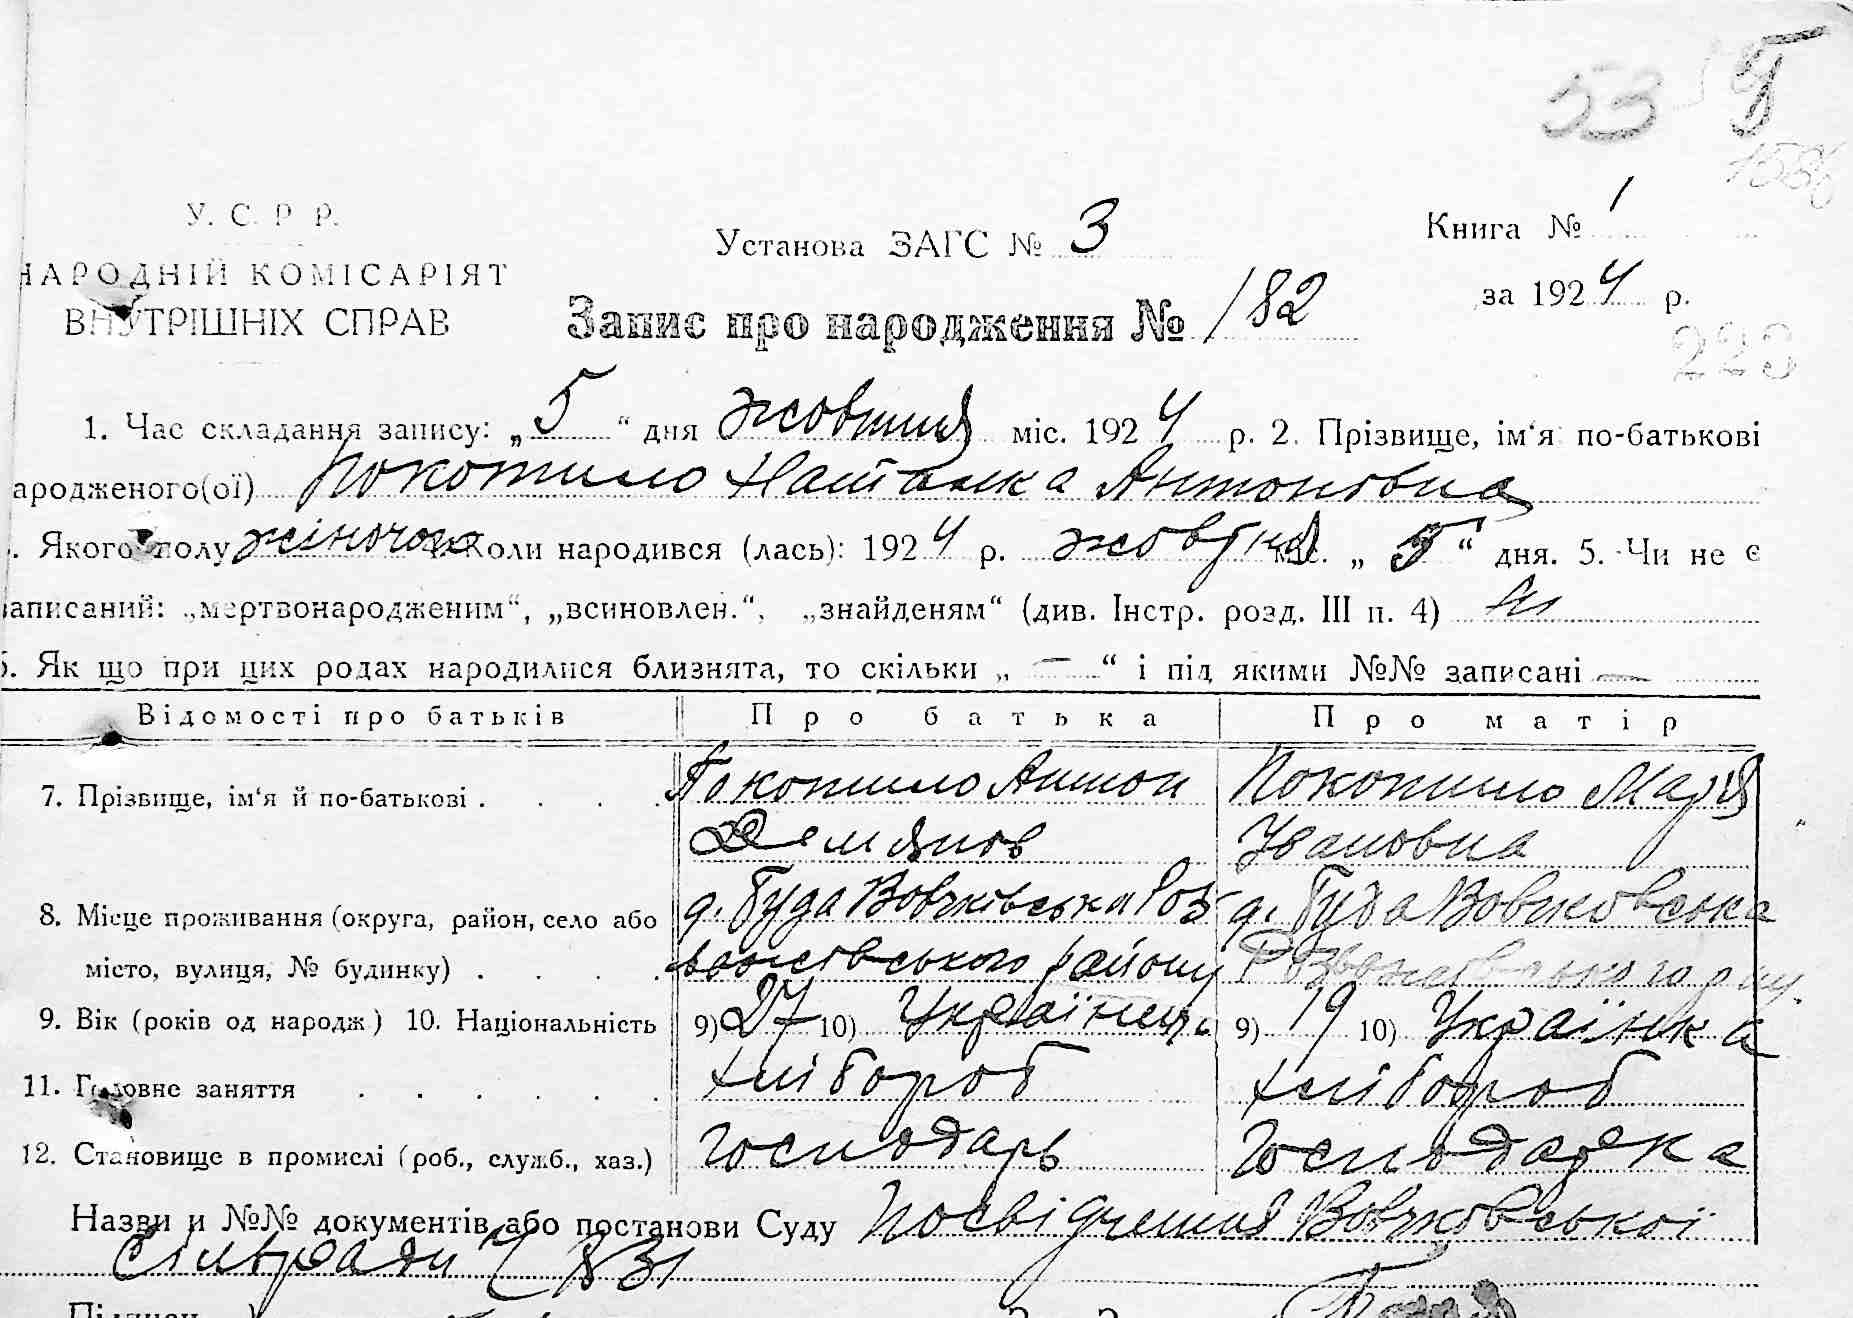 53
У. С. Р. Р.
НАРОДНІЙ КОМІСАРІЯТ
ВНУТРІШНІХ СПРАВ
Установа ЗАГС № 3
Книга № 1
за 1924 р.
Запис про народження № 182
223
1. Час складання запису: „5“ дня жовтня міс. 1924 р. 2. Прізвище, ім‘я по-батькові
ародженого(ої) Покотило Наталка Антоновна
. Якого полу жіночого Коли народився (лась): 1924 р. жовтня міс. „5“ дня. 5. Чи не є
записаний: „мертвонародженим“, „всиновлен.“, „знайденям“ (див. Інстр. розд. III п. 4) ні
6. Як що при цих родах народилися близнята, то скільки „ — “ і під якими №№ записані —
Відомості про батьків Про батька Про матір
7. Прізвище, ім‘я й по-батькові . . . . Покотило Антон Покотило Марія
Демянов Івановна
8. Місце проживання (округа, район, село або д. Буда Вовчківська Роз д. Буда Вовчковська
місто, вулиця, № будинку) . . . . важевського району Розважевського р ну.
9. Вік (років од народж) 10. Національність 9) 27 10) Українець 9) 19 10) Українка
11. Головне заняття . . . . . . Хлібороб Хлібороб
12. Становище в промислі (роб., служб., хаз.) Господарь Господарка
Назви и №№ документів або постанови Суду Посвідчення Вовчковської
Сільради